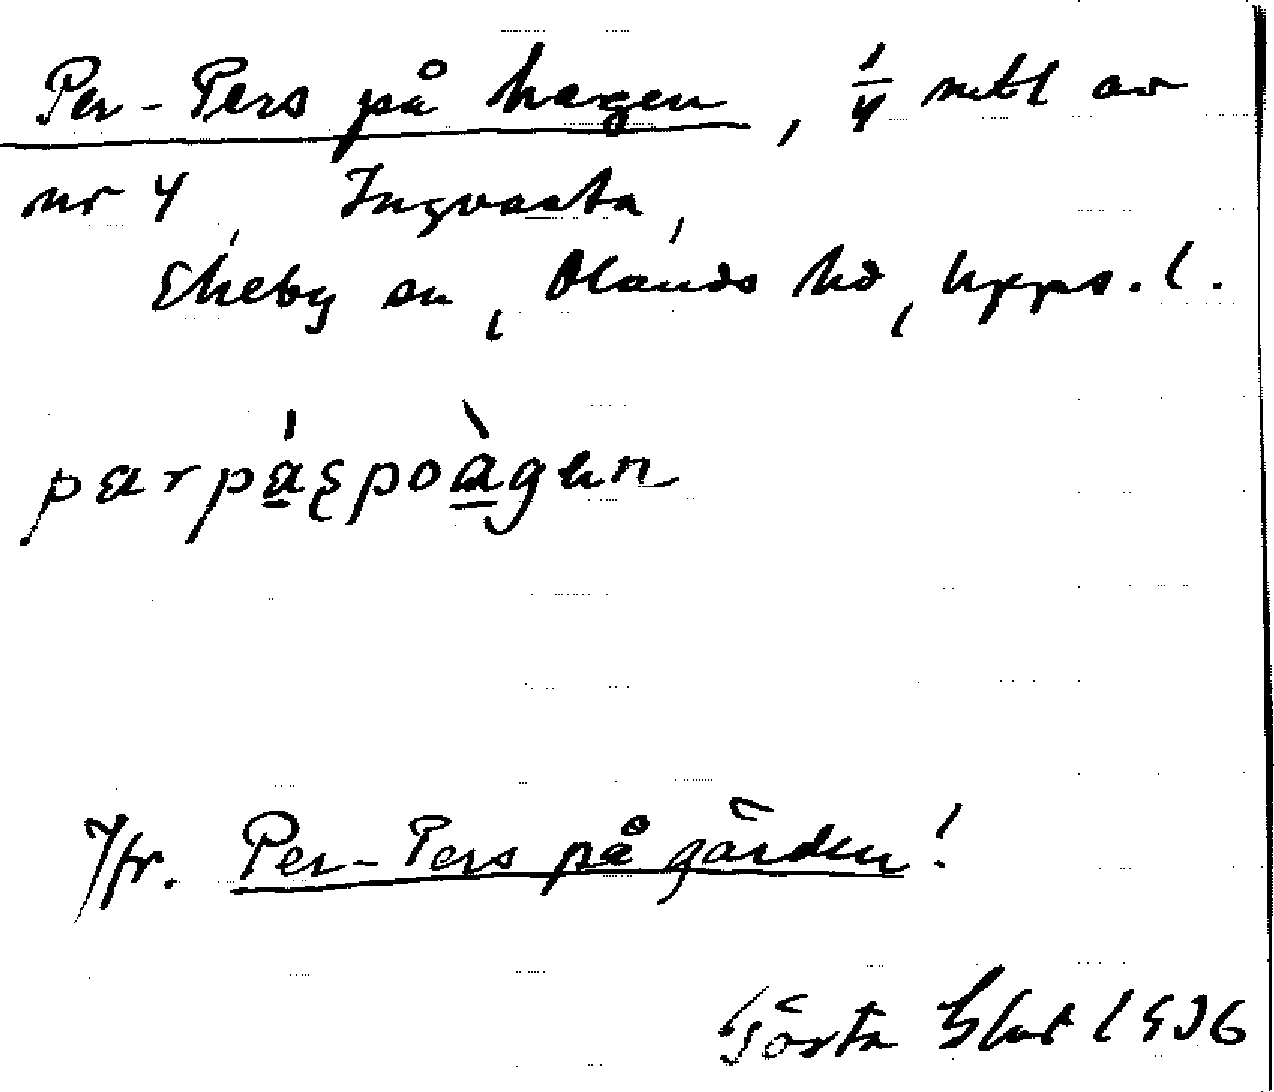 Per-Pers på hagen, 1/4 mtl av
nr 4, Ingvasta,
Ekeby sn, Olands hd, Upps. l.
parpáspoàgen
Jfr. Per-Pers på gården!
Gösta 1936